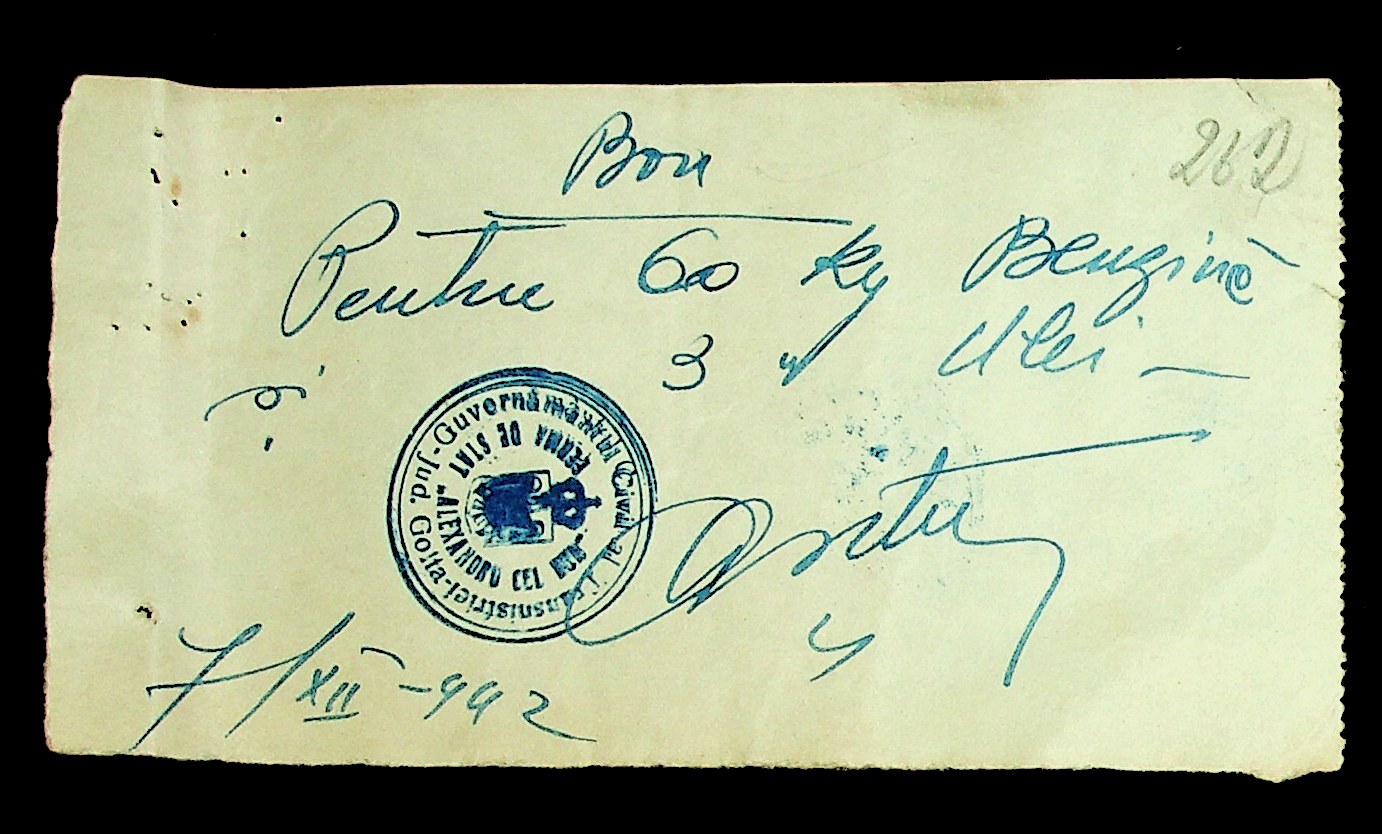 262
Bon
Pentru 60 kg Benzină
și 3 " Ulei —
Guvernământul Civil al Transnistriei - Jud. Golta
FERMA DE STAT
„ALEXANDRU CEL BUN”
7/XII-942